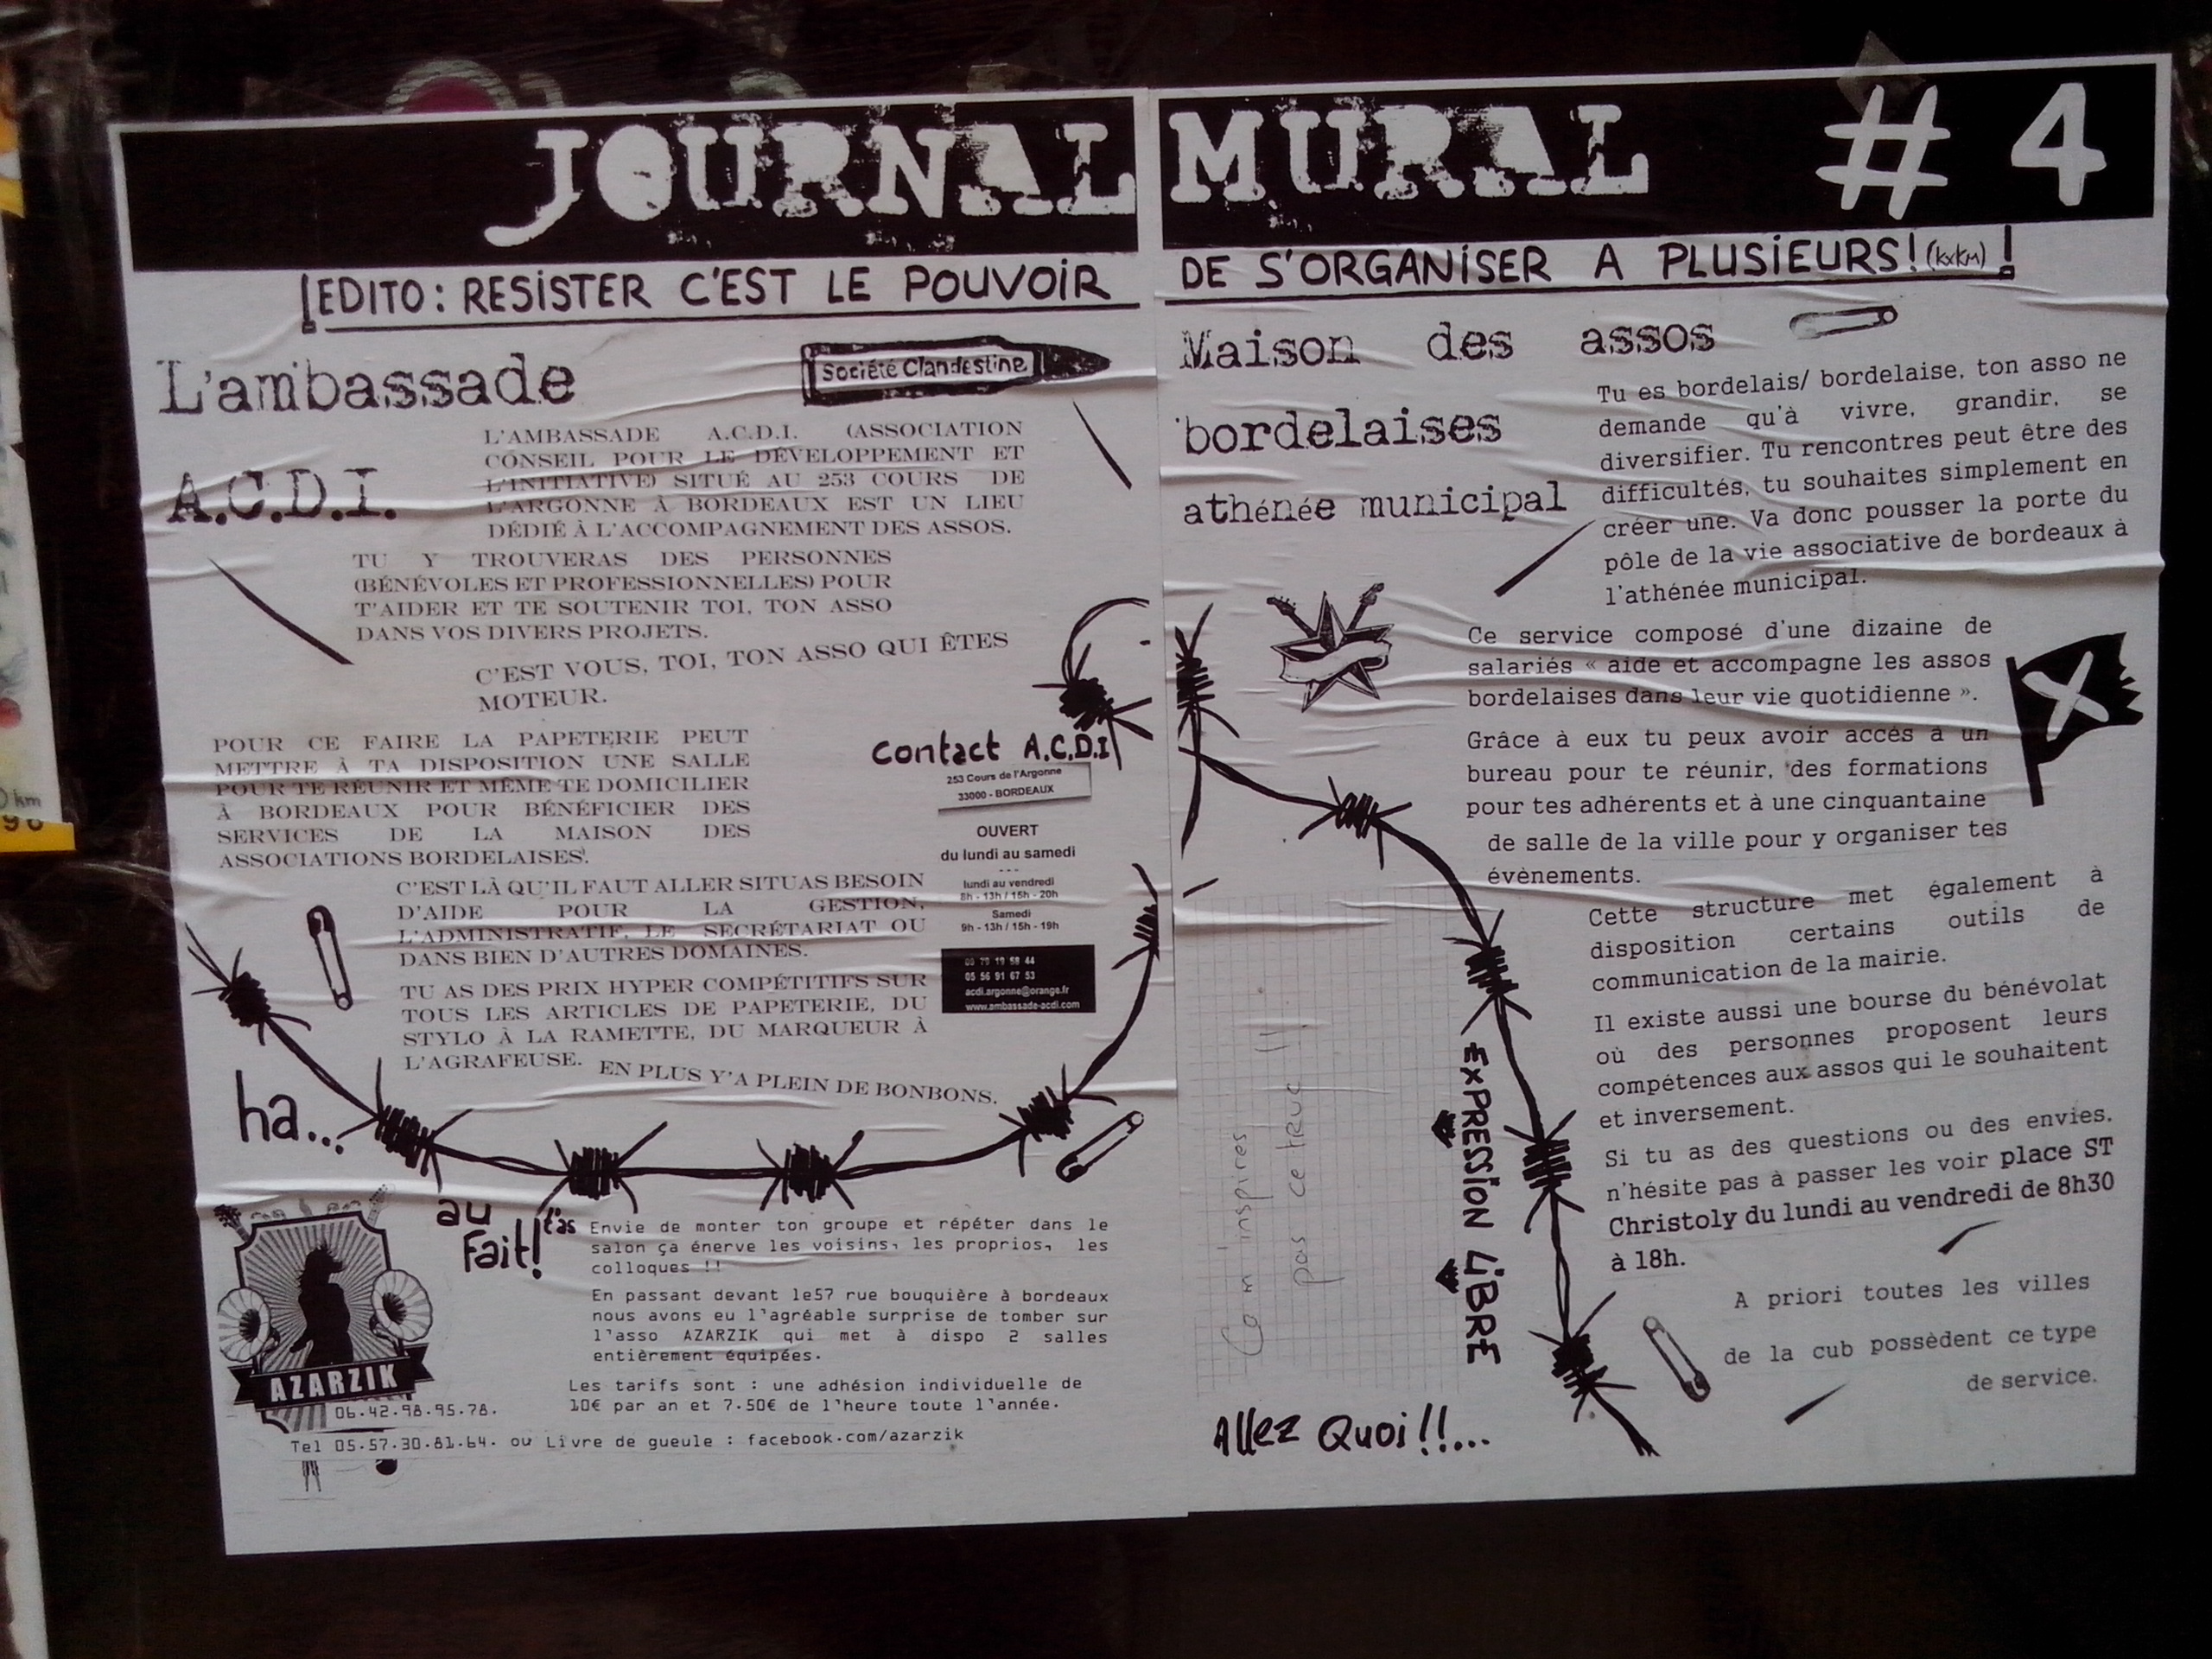 JOURNAL MURAL # 4
!EDITO: RESISTER C'EST LE POUVOIR DE S'ORGANISER A PLUSIEURS! (KxKM) !
L'ambassade
A.C.D.I.
Société Clandestine
L'AMBASSADE A.C.D.I. (ASSOCIATION
CONSEIL POUR LE DÉVELOPPEMENT ET
L'INITIATIVE) SITUÉ AU 253 COURS DE
L'ARGONNE À BORDEAUX EST UN LIEU
DÉDIÉ À L'ACCOMPAGNEMENT DES ASSOS.
TU Y TROUVERAS DES PERSONNES
(BÉNÉVOLES ET PROFESSIONNELLES) POUR
T'AIDER ET TE SOUTENIR TOI, TON ASSO
DANS VOS DIVERS PROJETS.
C'EST VOUS, TOI, TON ASSO QUI ÊTES
MOTEUR.
POUR CE FAIRE LA PAPETERIE PEUT
METTRE À TA DISPOSITION UNE SALLE
POUR TE RÉUNIR ET MÊME TE DOMICILIER
À BORDEAUX POUR BÉNÉFICIER DES
SERVICES DE LA MAISON DES
ASSOCIATIONS BORDELAISES.
C'EST LÀ QU'IL FAUT ALLER SITUAS BESOIN
D'AIDE POUR LA GESTION,
L'ADMINISTRATIF, LE SECRÉTARIAT OU
DANS BIEN D'AUTRES DOMAINES.
TU AS DES PRIX HYPER COMPÉTITIFS SUR
TOUS LES ARTICLES DE PAPETERIE, DU
STYLO À LA RAMETTE, DU MARQUEUR À
L'AGRAFEUSE.
EN PLUS Y'A PLEIN DE BONBONS.
Contact A.C.D.I
253 Cours de l'Argonne
33000 - BORDEAUX
OUVERT
du lundi au samedi
---
lundi au vendredi
8h - 13h / 15h - 20h
Samedi
9h - 13h / 15h - 19h
79 19 58 44
05 56 91 67 53
acdi.argonne@orange.fr
www.ambassade-acdi.com
ha...
au
Fait!
t'as Envie de monter ton groupe et répéter dans le
salon ça énerve les voisins, les proprios, les
colloques !!
En passant devant le57 rue bouquière à bordeaux
nous avons eu l'agréable surprise de tomber sur
l'asso AZARZIK qui met à dispo 2 salles
entièrement équipées.
Les tarifs sont : une adhésion individuelle de
10€ par an et 7.50€ de l'heure toute l'année.
AZARZIK
06.42.98.95.78.
Tel 05.57.30.81.64. ou Livre de gueule : facebook.com/azarzik
Maison des assos
bordelaises
athénée municipal
Tu es bordelais/ bordelaise, ton asso ne
demande qu'à vivre, grandir, se
diversifier. Tu rencontres peut être des
difficultés, tu souhaites simplement en
créer une. Va donc pousser la porte du
pôle de la vie associative de bordeaux à
l'athénée municipal.
Ce service composé d'une dizaine de
salariés « aide et accompagne les assos
bordelaises dans leur vie quotidienne ».
Grâce à eux tu peux avoir accés à un
bureau pour te réunir, des formations
pour tes adhérents et à une cinquantaine
de salle de la ville pour y organiser tes
évènements.
Cette structure met également à
disposition certains outils de
communication de la mairie.
Il existe aussi une bourse du bénévolat
où des personnes proposent leurs
compétences aux assos qui le souhaitent
et inversement.
Si tu as des questions ou des envies,
n'hésite pas à passer les voir place ST
Christoly du lundi au vendredi de 8h30
à 18h.
A priori toutes les villes
de la cub possèdent ce type
de service.
EXPRESSION LIBRE
Co m'inspires
pas ce truc !!
Allez Quoi!!...
km